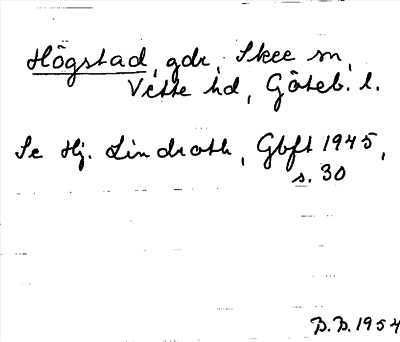 Högstad, gdr, Skee sn,
Vette hd, Göteb. l.
Se Hj. Lindroth, Gbft 1945,
s. 30
B.B. 1954